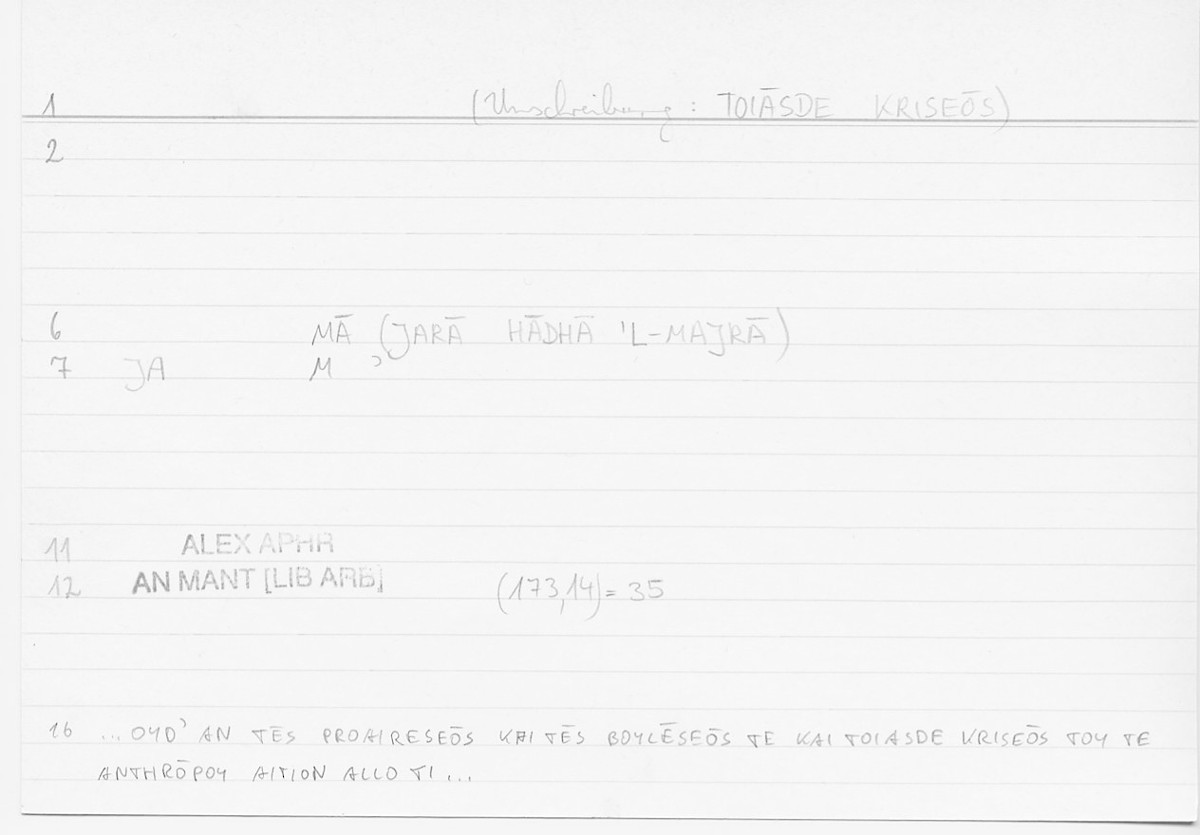 1 (Umschreibung: TOIĀSDE KRISEŌS)
2
6 MĀ (JARĀ HĀDHĀ 'L-MAJRĀ)
7 JA M ʾ
11 ALEX APHR
12 AN MANT [LIB ARB] (173,14) = 35
16 ... OYD' AN TĒS PROAIRESEŌS KAI TĒS BOYLĒSEŌS TE KAI TOIASDE KRISEŌS TOY TE
ANTHRŌPOY AITION ALLO TI ...